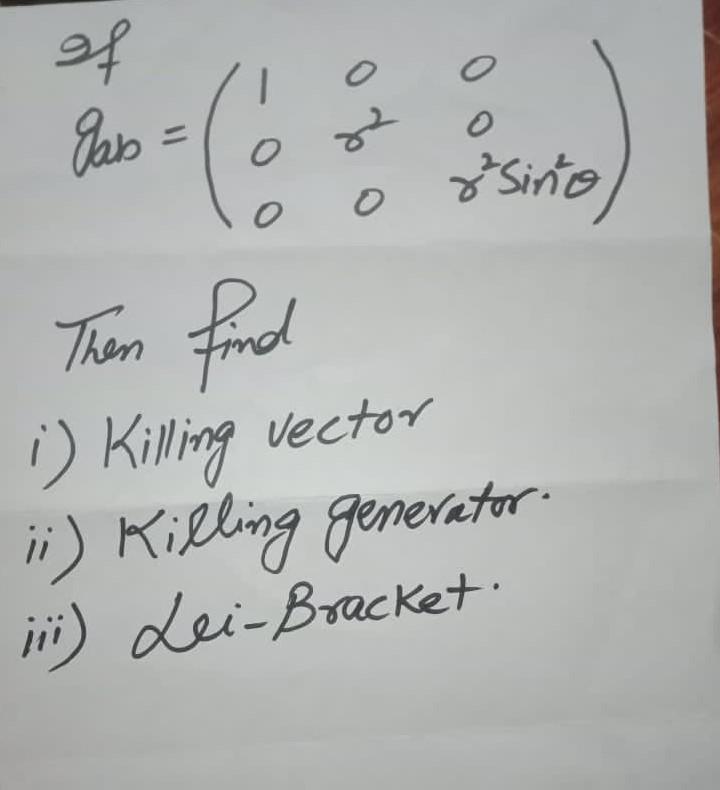 If
gab = (1 0 0
0 r² 0
0 0 r²Sin²θ)
Then find
i) Killing vector
ii) Killing generator.
iii) Lei-Bracket.